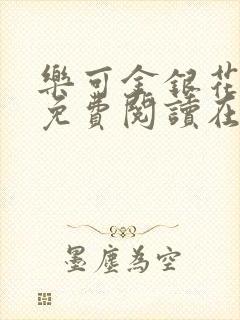 樂可金銀花
免費閱讀在
墨塵為空